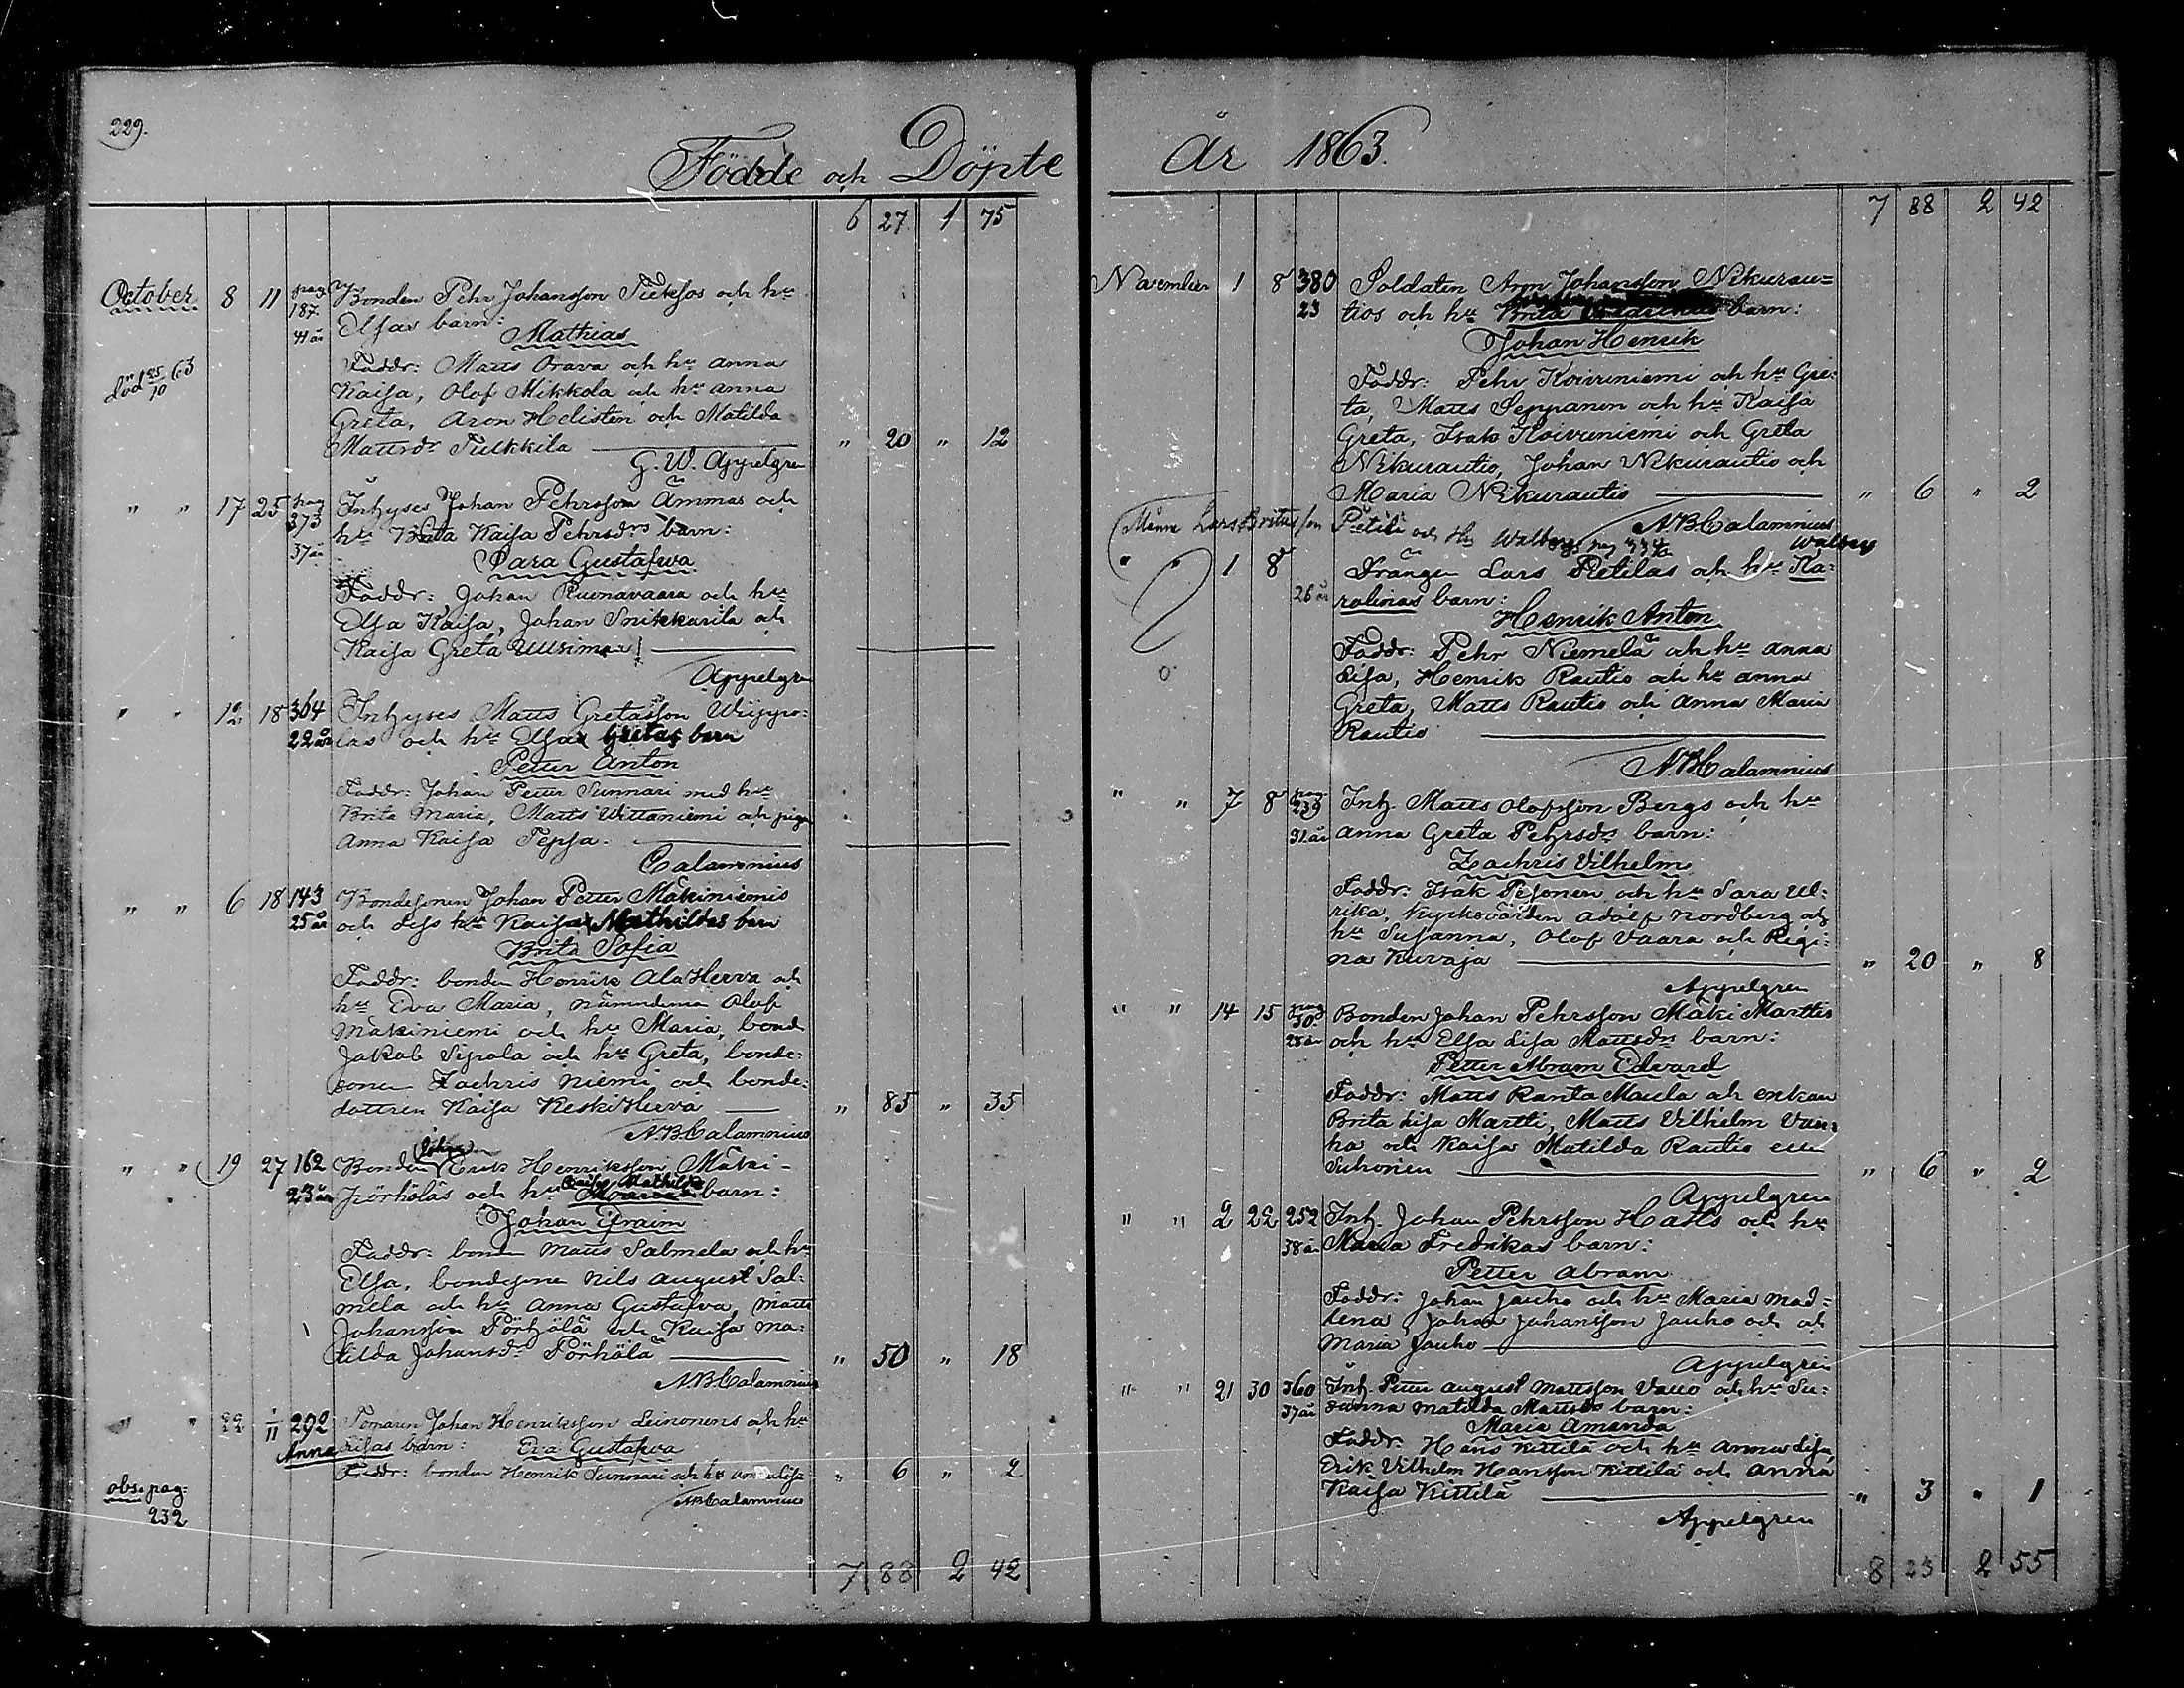 229.
Födde och Döpte
6 27 1 75
October 8 11 pag 187. Bonden Pehr Johansson Tieksos och hu
41 år Elsas barn:
Mathias
död 25/10 63
Faddr: Matts Orava och hu Anna
Kaisa, Olof Mikkola och hu Anna
Greta, Aron Helisten och Matilda
Mattsdr Tulkkila " 20 " 12
G. W. Appelgren
" " 17 25 pag 373 Inhyses Johan Pehrsson Ämmas och
37 år hu Brita Kaisa Pehrsdrs barn:
Sara Gustafva
Faddr: Johan Ruonavaara och hu
Elsa Kaisa, Johan Snikkarila och
Kaisa Greta Uusimaa
Appelgren
" " 12 18 364 Inhyses Matts Gretasson Wiippo-
22 år las och hu Elsa Gretas barn
Petter Anton
Faddr: Johan Petter Sunnari med hu
Brita Maria, Matts Wittaniemi och piga
Anna Kaisa Tepsa.
Calamnius
" " 6 18 143 Bondesonen Johan Petter Mäkiniemis
25 år och dess hu Kaisa Mathildas barn
Brita Sofia
Faddr: bonden Henrik AlaHerva och
hu Eva Maria, nämndeman Olof
Mäkiniemi och hu Maria, bond
Jakob Sipola och hu Greta, bonde-
sonen Zachris Niemi och bonde-
dottren Kaisa KeskiHerva " 85 " 35
N B Calamnius
" " 19 27 162 Bonden Johan Erik Henriksson Mäki-
23 år pörhöläs och hu Kaisa Mathilda barn:
Johan Efraim
Faddr: bonden Matts Salmela och hu
Elsa, bondesonen Nils August Sal-
mela och hu Anna Gustafva, Matts
Johansson Pörhölä och Kaisa Ma-
tilda Johansdr Pörhölä " 50 " 18
N. B Calamnius
" " 22 1/11 292 Tomaren Johan Henriksson Leinonens och hu
Anna Lisas barn: Eva Gustafva
Faddr: bonden Henrik Sunnari och hu Anna Lisa " 6 " 2
N B Calamnius
obs. pag:
232
7 88 2 42
År 1863.
7 88 2 42
November 1 8 380 Soldaten Aron Johansson Nikurau-
23 tios och hu Brita barn:
Johan Henrik
Faddr: Pehr Koivuniemi och hu Gre-
ta, Matts Seppanen och hu Kaisa
Greta, Isak Koivuniemi och Greta
Nikurautio, Johan Nikurautio och
Maria Nikurautio " 6 " 2
N B Calamnius
Lars Britasson Petila och Hu Walborg pag 334
" " 1 8 Drängen Lars Petiläs och hu Walborg Ka-
26 år rolinas barn:
Henrik Anton
Faddr: Pehr Niemelä och hu Anna
Lisa, Henrik Rautio och hu Anna
Greta, Matts Rautio och Anna Maria
Rautio
N. B Calamnius
" " 7 8 pag 239 Inh. Matts Olofsson Bergs och hu
31 år Anna Greta Pehrsdrs barn:
Zachris Vilhelm
Faddr: Isak Pesonen och hu Sara Ul-
rika, kyrkovärden Adolf Nordberg och
hu Susanna, Olof Vaara och Regi-
na Kuvaja " 20 " 8
Appelgren
" " 14 15 pag 30. Bonden Johan Pehrsson Mäki Marttis
28 år och hu Elsa Lisa Mattsdrs barn:
Petter Abram Edvard
Faddr: Matts Ranta Maula och enkan
Brita Lisa Martti, Matts Vilhelm Van-
ha och Kaisa Matilda Rautio ell.
Suhonen " 6 " 2
Appelgren
" " 2 22 252 Inh. Johan Pehrsson Hasts och hu
38 år Maria Fredrikas barn:
Petter Abram
Faddr: Johan Jauho och hu Maria Mad-
lena, Johan Johansson Jauho och
Maria Jauho
Appelgren
" " 21 30 360 Inh. Petter August Mattsson Vallo och hu Su-
37 år sanna Matilda Mattsdrs barn:
Maria Amanda
Faddr: Hans Kittilä och hu Anna Lisa,
Erik Vilhelm Hansson Kittilä och Anna
Kaisa Kittilä " 3 " 1
Appelgren
8 23 2 55